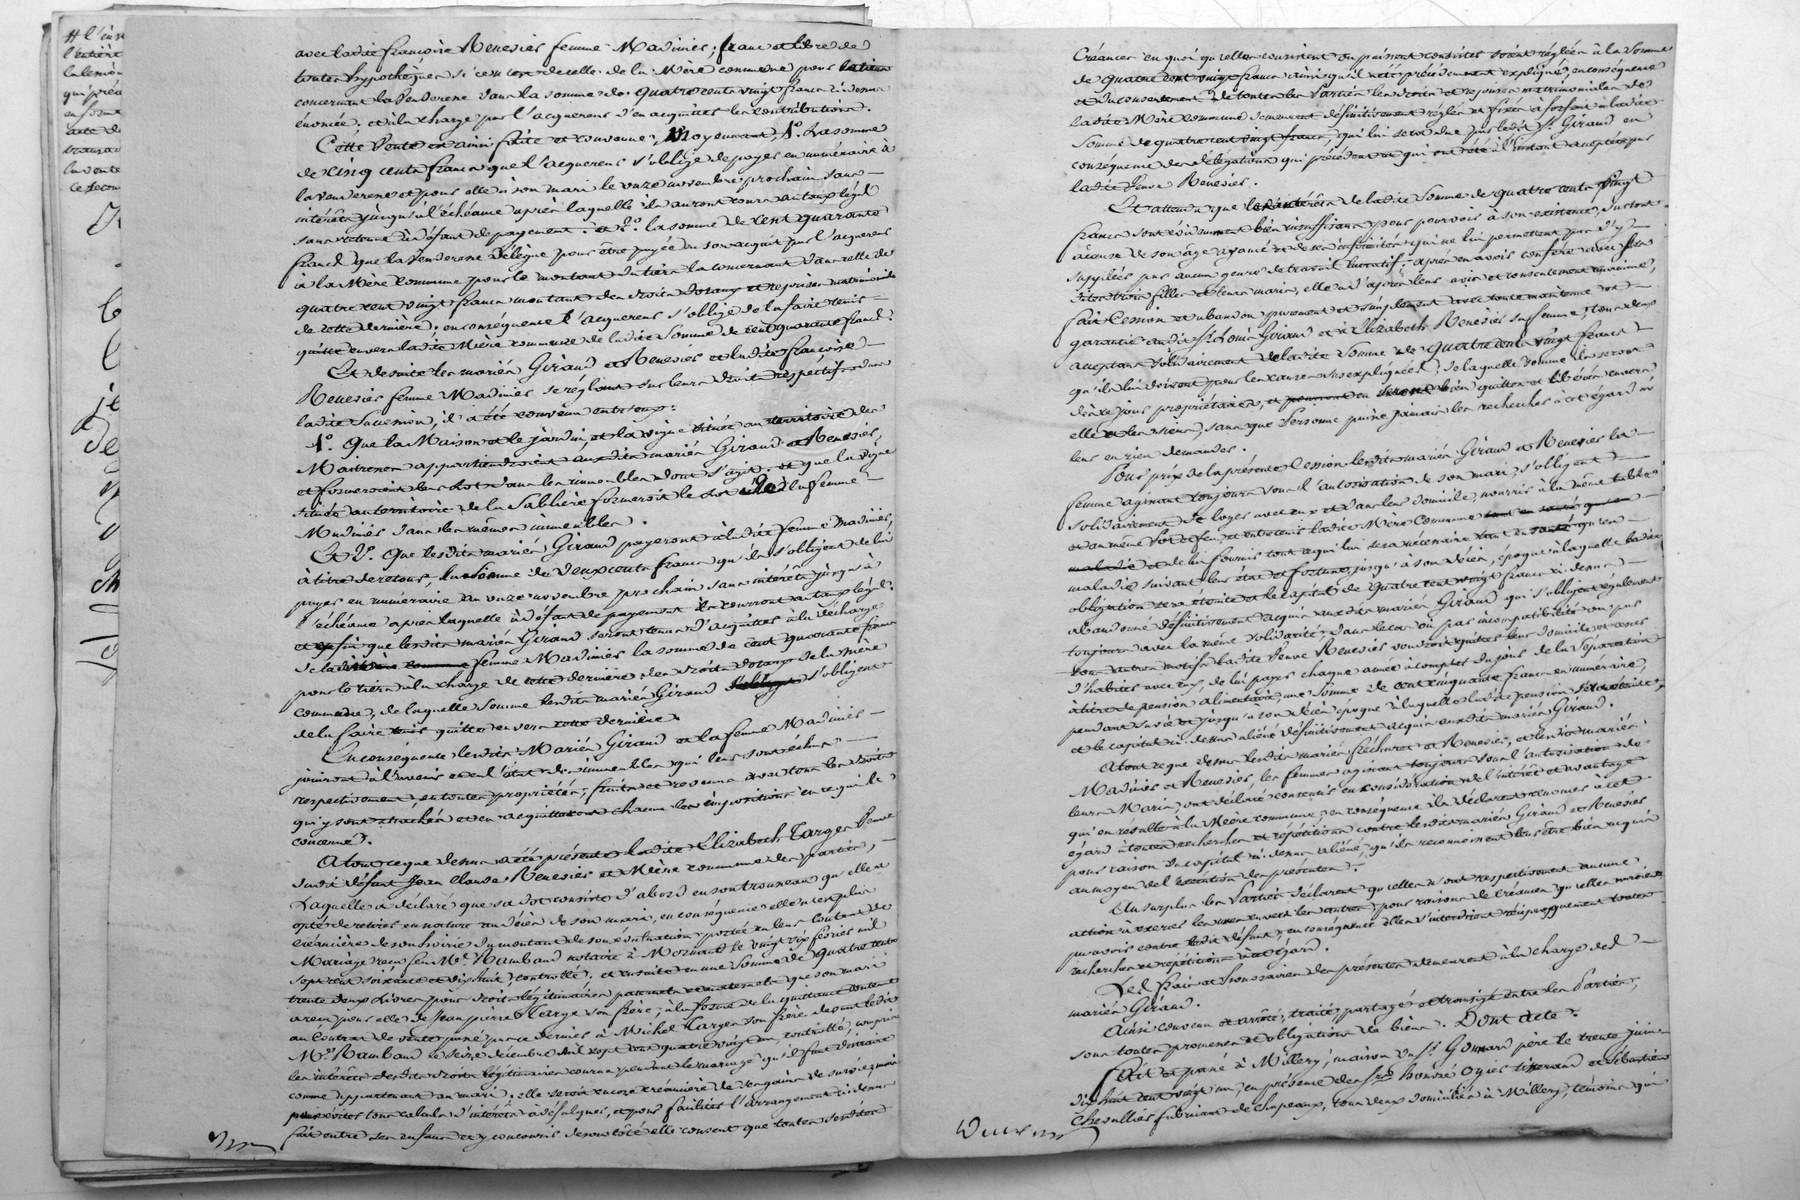 # l'ins
avec ladite françoise Renesier femme Madinier, franc et libre de
toutes hypothèques, si ce n'est de celle de la Mère commune pour le tiers
concernant la Venderesse dans la somme de quatre cents vingt francs ci dessus
énoncée, et à la charge par l'acquereur d'en acquitter les contributions.
Cette Vente est ainsi faite et convenue, Moyennant, 1.° La somme
de Cinq cents francs que l'acquereur s'oblige de payer en numéraire à
la venderesse et pour elle à son mari le onze novembre prochain sans
intérêts jusqu'à l'échéance après laquelle ils auront cours au taux légal
sans retenue à défaut de payement. et 2.° la somme de Cent quarante
francs que la Venderesse délègue pour être payée en son acquit par l'acquereur
à la Mère commune pour le montant du tiers la concernant dans celle de
quatre cent vingt francs montant des droits dotaux et reprises matrimoniales
de cette dernière, en conséquence l'acquereur s'oblige de la faire tenir
quitte envers ladite Mère commune de ladite somme de cent quarante francs.
Et de suite les mariés Giraud et Renesier et ladite françoise
Renesier femme Madinier se réglant sur leurs droits respectifs dans
ladite Succession, il a été convenu entr'eux:
1.° Que la Maison et le jardin et la vigne située au territoire des
appartiendroient auxdits mariés Giraud et Renesier,
et formeroient leur lot dans les immeubles dont s'agit, et que la vigne
située au territoire de la Sablière formeroit le lot de la femme
Madinier dans les mêmes immeubles.
Et 2.° Que lesdits mariés Giraud payeront à ladite femme Madinier,
à titre de retour, la somme de Deux cents francs qu'ils s'obligent de lui
payer en numéraire au onze novembre prochain sans intérêts jusqu'à
l'échéance après laquelle à défaut de payement ils courront au taux légal.
et enfin que lesdits mariés Giraud seront tenus d'acquitter à la décharge
de ladite femme Madinier la somme de cent quarante francs
pour le tiers à la charge de cette dernière des droits dotaux de la mère
commune, de laquelle somme lesdits mariés Giraud s'obligent
de la faire tenir quitte envers cette dernière.
En conséquence lesdits Mariés Giraud et la femme Madinier
jouiront à l'avenir et en l'état des immeubles qui leur sont échus
respectivement en toute propriété, fruits et revenus avec tous les droits
qui y sont attachés et en acquitteront chacun les impositions en ce qui le
concerne.
A tout ce que dessus a été présente ladite Elizabeth Targe Veuve
dudit défunt Jean Claude Renesier et Mère commune des parties,
Laquelle a déclaré que sa dot consiste d'abord en son trousseau qu'elle a
opté de retirer en nature au décès de son mari, en conséquence elle n'est plus
créancière de son hoirie du montant de son évaluation portée en leur Contrat de
Mariage reçu feu M.e Rambaud notaire à Mornant le vingt six février mil
sept cent soixante et dix huit, controllé, et ensuite en une somme de quatre cents
trente deux livres pour droits légitimaires paternels et maternels que son mari
a reçu pour elle de Jean pierre Targe son frère, à la forme de la quittance contenue
au Contrat de vente passé par ce dernier à Michel Targe son frère devant ledit
M.e Rambaud le seize décembre mil sept cent quatre vingt un, controllé, y compris
les intérêts desdits droits légitimaires courus pendant le mariage qu'il faut distraire
comme appartenant au mari, elle seroit encore créancière de ses gains de survie, mais
pour éviter tous calculs d'intérêts à défalquer, et pour faciliter l'arrangement ci dessus
fait entre ses enfans et y concourir de son côté elle consent que toutes ses dites
Créances en quoi qu'elles consistent ou puissent consister soient réglées à la somme
de quatre cent vingt francs ainsi qu'il a été précédemment expliqué, en conséquence
et du consentement de toutes les Parties les droits et reprises matrimoniales de
ladite Mère commune demeurent définitivement réglés et fixés à forfait à ladite
Somme de quatre cent vingt francs, qui lui sera due par ledit S.r Giraud en
conséquence des délégations qui précèdent et qui ont été à l'instant acceptées par
ladite Veuve Renesier.
Et attendu que les intérêts de ladite somme de quatre cents vingt
francs sont évidemment bien insuffisans pour pourvoir à son existence, surtout
à cause de son âge avancé et de ses infirmités qui ne lui permettent pas d'y
suppléer par aucun genre de travail lucratif, après en avoir conféré avec ses
dites trois filles et leurs maris, elle a d'après leur avis et consentement unanime,
fait Cession et abandon purement et simplement avec toute maintenue et
garantie audit S.r Louis Giraud et à Elizabeth Renesier sa femme, tous deux
acceptans solidairement de ladite somme de quatre cents vingt francs
qu'ils lui doivent pour les causes sus expliquées, de laquelle somme ils seront
dès ce jour propriétaires, et pourront en seront bien quittes et libérés envers
elle et les siens, sans que Personne puisse jamais les rechercher à cet égard ni
leur en rien demander.
Pour prix de la présente Cession lesdits mariés Giraud et Renesier la
femme agissant toujours sous l'autorisation de son mari, s'obligent
solidairement de loger avec eux et dans leur domicile, nourrir à la même table
et au même pot et feu, et entretenir ladite Mère Commune
et de lui fournir tout ce qui lui sera nécessaire tant en santé qu'en
maladie suivant leur état et fortune jusqu'à son décès, époque à laquelle ladite
obligation sera éteinte et le capital de quatre cent vingt francs ci dessus
abandonné définitivement acquis auxdits mariés Giraud qui s'obligent également
toujours avec la même solidarité, dans le cas où par incompatibilité ou par
tout autre motif ladite Veuve Renesier voudroit quitter leur domicile et cesser
d'habiter avec eux, de lui payer chaque année à compter du jour de la Séparation
à titre de pension alimentaire, une Somme de cent cinquante francs en numéraire,
pendant sa vie et jusqu'à son décès époque à laquelle ladite pension s'éteindra,
et le capital ci dessus aliéné définitivement acquis auxdits mariés Giraud.
A tout ce que dessus lesdits mariés et Renesier, et lesdits mariés
Madinier et Renesier, les femmes agissant toujours sous l'autorisation de
leurs Maris, ont déclaré consentir en considération de l'intérêt et avantage
qui en résulte à la Mère commune, en conséquence ils déclarent renoncer à cet
égard à toutes recherches et répétitions contre lesdits mariés Giraud et Renesier
pour raison du capital ci dessus aliéné, qu'ils reconnoissent leur être bien acquis
au moyen de l'exécution des présentes.
Au surplus les Parties déclarent qu'elles n'ont respectivement aucune
action à exercer les unes envers les autres, pour raison de créances qu'elles auroient
pu avoir contre ledit défunt, en conséquence elles s'interdisent réciproquement toutes
recherches et répétitions à cet égard.
Les frais et honoraires des présentes demeurent à la charge des
mariés Giraud.
Ainsi convenu et arrêté, traité, partagé et transigé entre les Parties,
sous toutes promesses et obligations de biens. Dont acte.
Fait et passé à Millery, maison du S.r Gonnard père le trente juin
dix huit cent vingt un, en présence des S.rs honoré Ogier tisserand et Sébastien
Chevallier fabricant de chapeaux, tous deux domiciliés à Millery, témoins qui